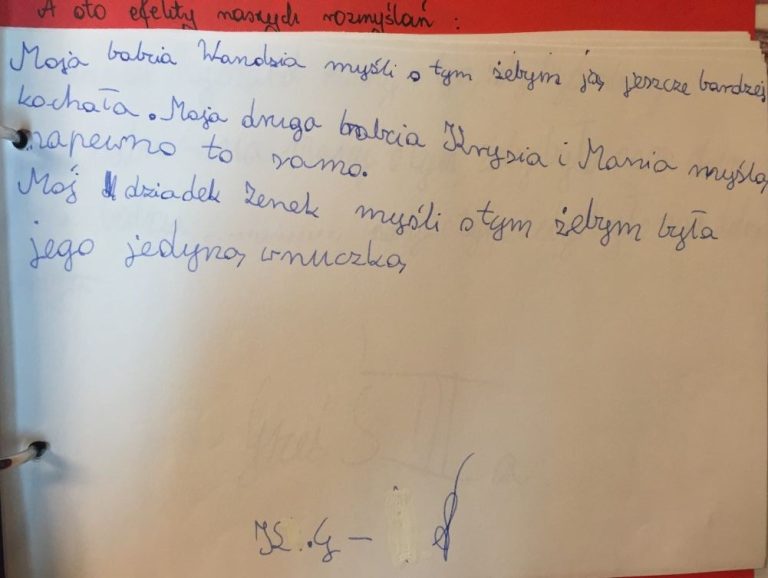 A oto efekty naszych rozmyślań :
Moja babcia Wandzia myśli o tym żebym ją jeszcze bardzej
kochała. Moja druga babcia Krysia i Mania myślą
napewno to samo.
Moś dziadek Zenek myśli o tym żebym była
jego jedyną wnuczką
K .G -